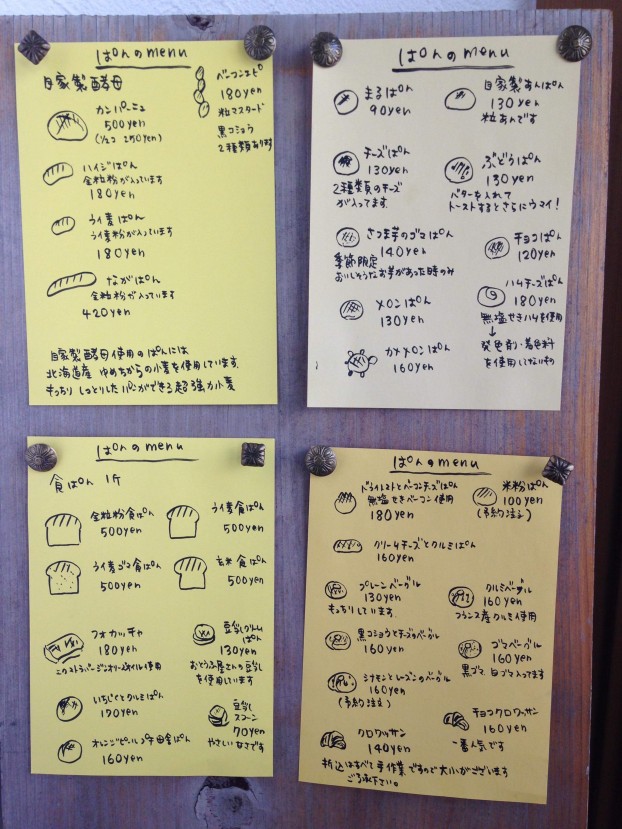 ぱんのmenu
自家製酵母
カンパーニュ
500yen
(1/2コ 250yen)
ハイジぱん
全粒粉が入っています
180yen
ライ麦ぱん
ライ麦粉が入っています
180yen
ながぱん
全粒粉が入っています
420yen
ベーコンエピ
180yen
粒マスタード
黒コショウ
2種類あります
自家製酵母使用のぱんには
北海道産 ゆめちからの小麦を使用しています。
もっちり しっとりしたパンができる超強力小麦
ぱんのmenu
まるぱん
90yen
チーズぱん
130yen
2種類のチーズ
が入ってます。
さつま芋のゴマぱん
140yen
季節限定
おいしそうなお芋があった時のみ
メロンぱん
130yen
カメメロンぱん
160yen
自家製あんぱん
130yen
粒あんです
ぶどうぱん
130yen
バターを入れて
トーストするとさらにウマイ!
チョコぱん
120yen
ハムチーズぱん
180yen
無塩せきハムを使用
↓
発色剤・着色料
を使用してないもの
ぱんのmenu
食ぱん 1斤
全粒粉食ぱん
500yen
ライ麦食ぱん
500yen
ライ麦ゴマ食ぱん
500yen
玄米食ぱん
500yen
フォカッチャ
180yen
エクストラバージンオリーブオイル使用
いちじくとクルミぱん
170yen
オレンジピール田舎ぱん
160yen
豆乳クリーム
ぱん
130yen
おとうふ屋さんの豆乳
を使用しています
豆乳
スコーン
70yen
やさしい甘さです
ぱんのmenu
ドライトマトとベーコンチーズぱん
無塩せきベーコン使用
180yen
米粉ぱん
100yen
(予約注文)
クリームチーズとクルミぱん
160yen
プレーンベーグル
130yen
もっちりしています。
クルミベーグル
160yen
フランス産クルミ使用
黒コショウとチーズのベーグル
160yen
ゴマベーグル
160yen
黒ゴマ、白ゴマ入ってます
シナモンとレーズンのベーグル
160yen
(予約注文)
クロワッサン
140yen
チョコクロワッサン
160yen
一番人気です
折込はすべて手作業ですので大小がございます
ご了承下さい。